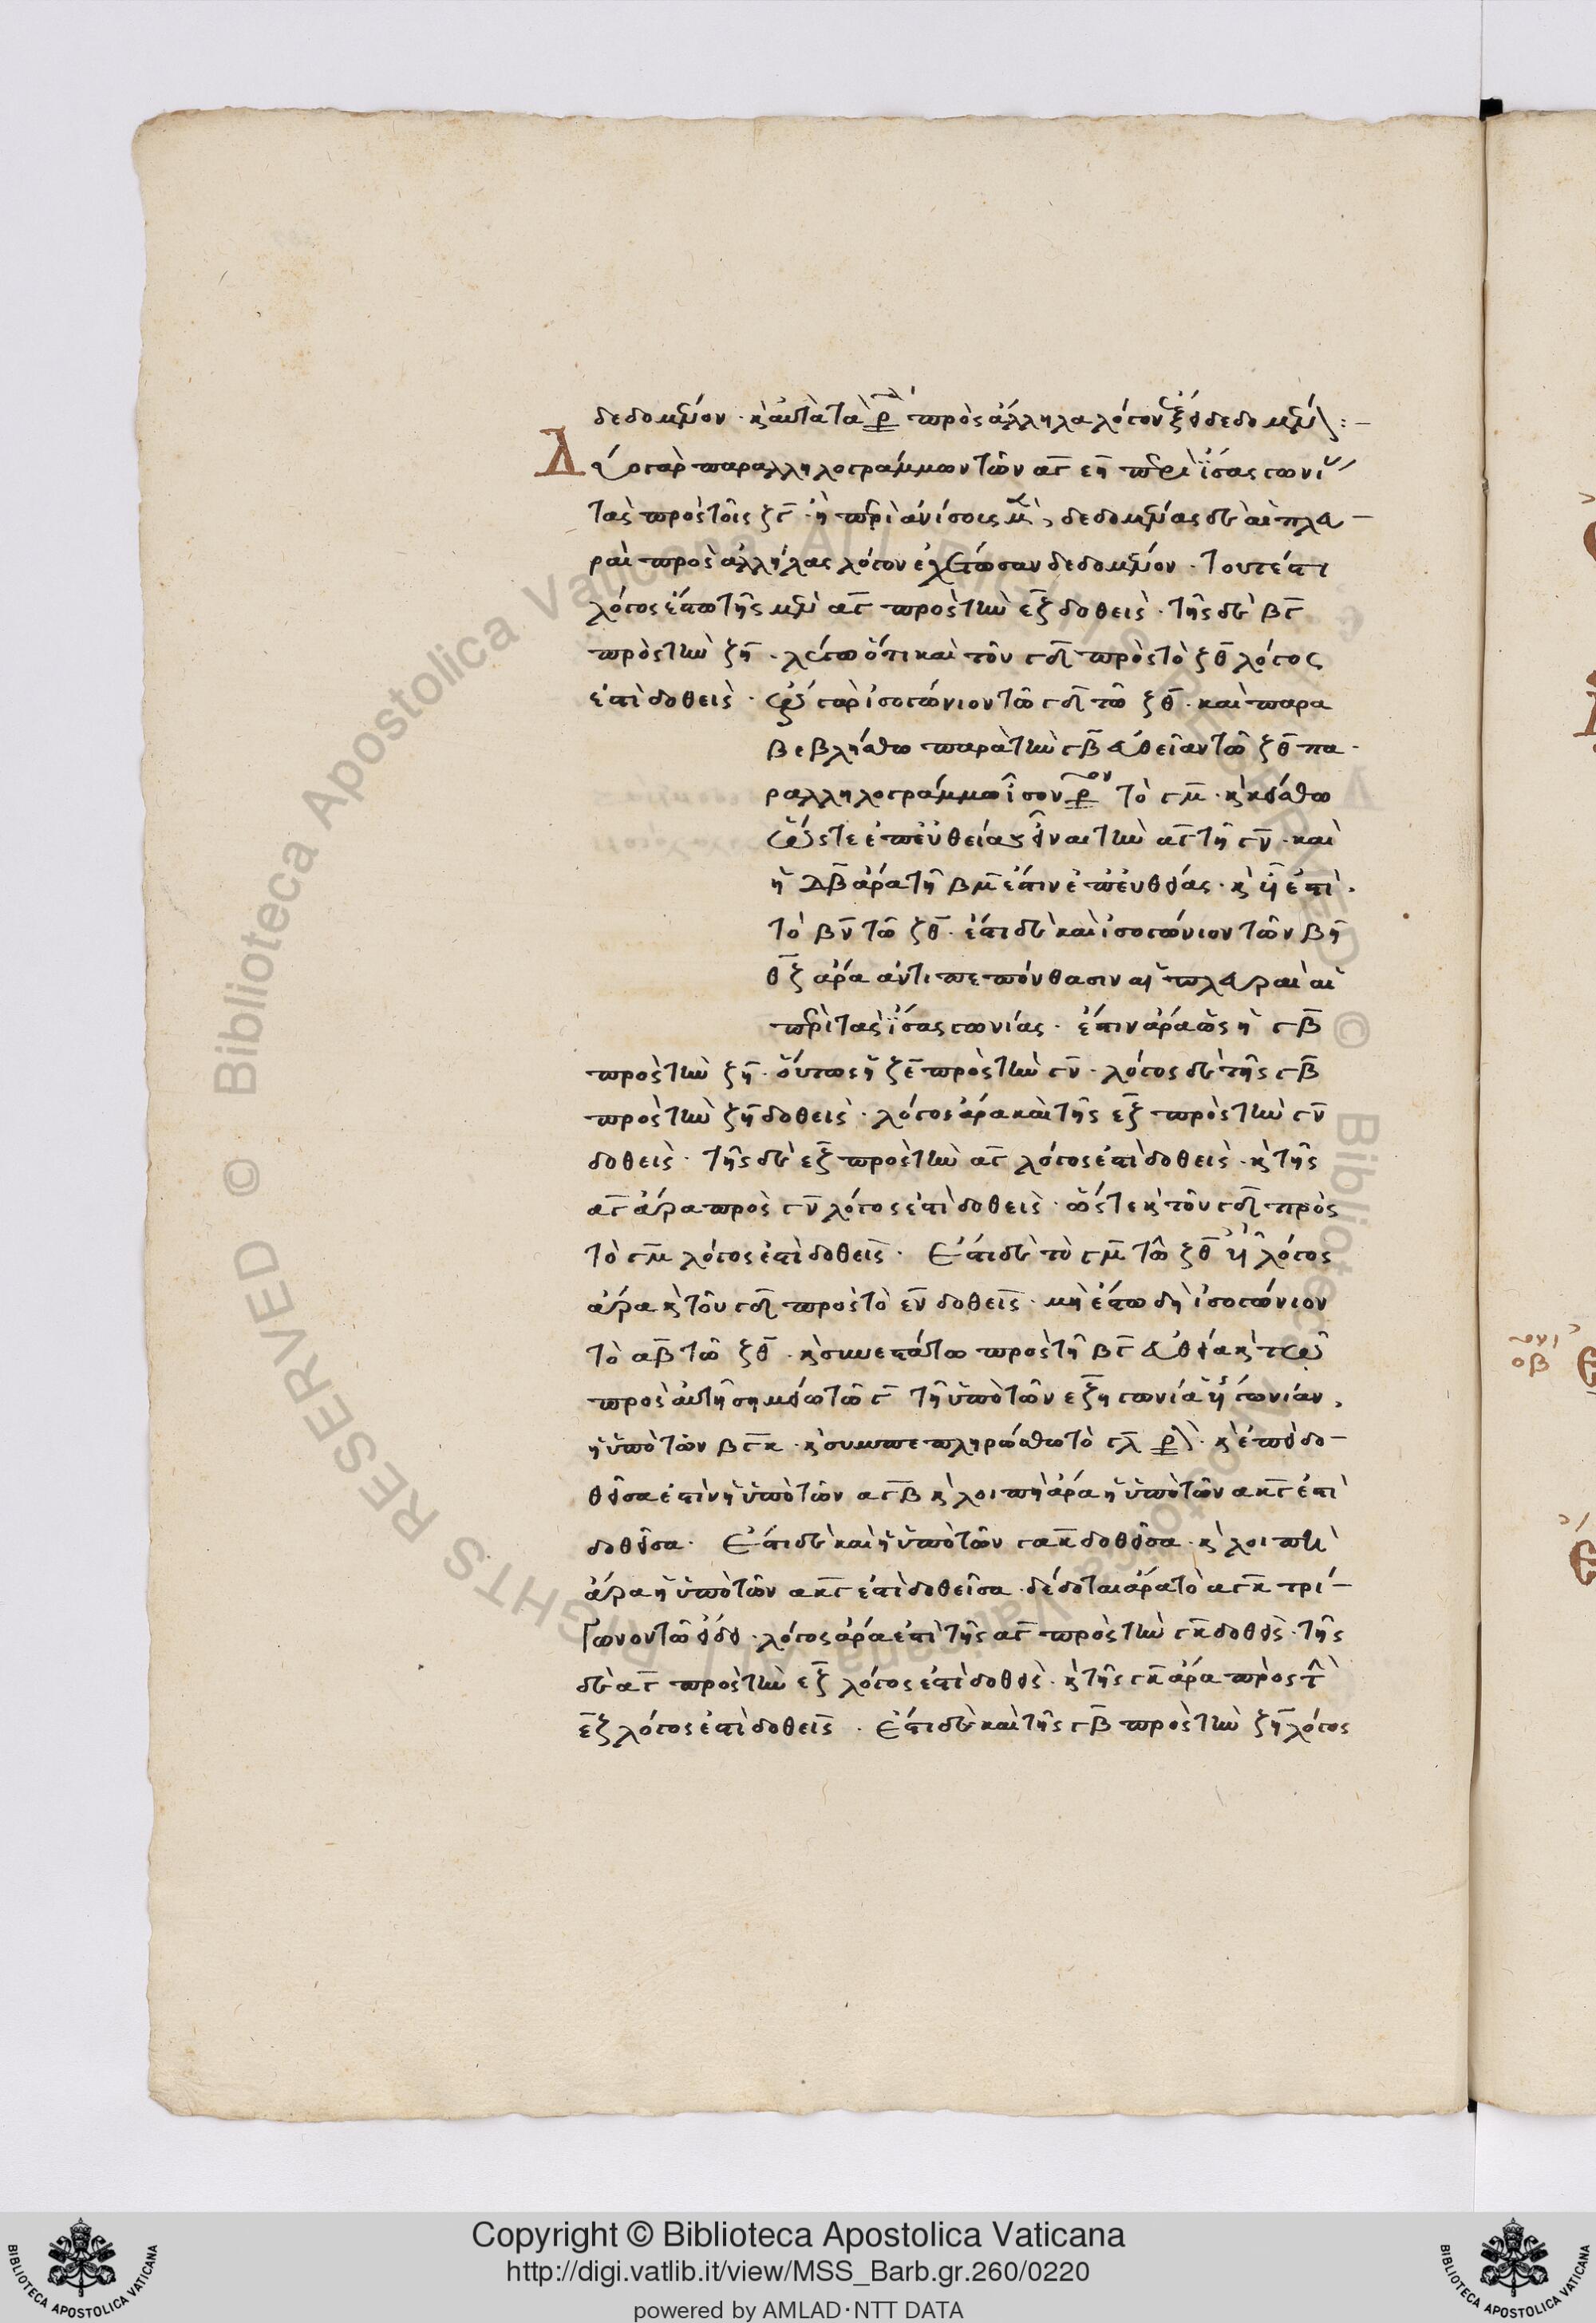 δεδομένον · καὶ αὐτὰ τὰ πρὸς ἄλληλα λόγον ἕξει δεδομένον :—
Δύο γὰρ παραλληλογράμμων τῶν αγ εη περὶ ἴσας γωνί
τας πρὸς τοῖς ζγ · ἢ περὶ ἀνίσους μὲν, δεδομένας δὲ αἱ πλευ—
ραὶ πρὸς ἀλλήλας λόγον ἐχέτωσαν δεδομένον · τουτέστι
λόγος ἔστω τῆς μὲν αγ πρὸς τὴν εζ δοθεὶς · τῆς δὲ βγ
πρὸς τὴν ζη · λέγω ὅτι καὶ τοῦ γδ πρὸς τὸ ζθ λόγος
ἐστὶ δοθεὶς · ἔστω γὰρ ἰσογώνιον τῶ γδ τῶ ζθ · καὶ παρα
βεβλήσθω παρὰ τὴν γβ εὐθεῖαν τῶ ζθ πα-
ραλληλογράμμω ἴσον τὸ γμ · καὶ κείσθω
ὥστε ἐπ' εὐθείας εἶναι τὴν αγ τῆ γν · καὶ
ἡ δβ ἄρα τῆ βμ ἐστιν ἐπ' εὐθείας · καὶ ἐστὶ
τὸ βν τῶ ζθ · ἔστι δὲ καὶ ἰσογώνιον τῶν βη
θζ ἄρα ἀντιπεπόνθασιν αἱ πλευραὶ αἱ
περὶ τὰς ἴσας γωνίας · ἔστιν ἄρα ὡς ἡ γβ
πρὸς τὴν ζη · οὕτως ἡ ζε πρὸς τὴν γν · λόγος δὲ τῆς γβ
πρὸς τὴν ζη δοθεὶς · λόγος ἄρα καὶ τῆς εζ πρὸς τὴν γν
δοθεὶς · τῆς δὲ εζ πρὸς τὴν αγ λόγος ἐστὶ δοθεὶς · καὶ τῆς
αγ ἄρα πρὸς γν λόγος ἐστὶ δοθεὶς · ὥστε καὶ τοῦ γδ πρὸς
τὸ γμ λόγος ἐστὶ δοθεὶς · Ἔστι δὲ τὸ γμ τῶ ζθ λόγος
ἄρα καὶ τοῦ γδ πρὸς τὸ εν δοθεὶς · μὴ ἔστω δὴ ἰσογώνιον
τὸ αβ τῶ ζθ · καὶ συνεστάτω πρὸς τῆ βγ εὐθεία καὶ τῶ
πρὸς αὐτῆ σημείω τῶ γ τῆ ὑπὸ τῶν εζη γωνία γωνίαν,
ἡ ὑπὸ τῶν βγκ · καὶ συμπεπληρώσθω τὸ γλ · καὶ ἐπεὶ δο—
θεῖσα ἐστὶν ἡ ὑπὸ τῶν αγβ καὶ λοιπὴ ἄρα ἡ ὑπὸ τῶν ακγ ἐστὶ
δοθεῖσα · Ἔστι δὲ καὶ ἡ ὑπὸ τῶν γακ δοθεῖσα · καὶ λοιπὴ
ἄρα ἡ ὑπὸ τῶν ακγ ἐστὶ δοθεῖσα · δέδοται ἄρα τὸ αγκ τρί—
γωνον τῶ εἴδει · λόγος ἄρα ἐστὶ τῆς αγ πρὸς τὴν γκ δοθεὶς · τῆς
δὲ αγ πρὸς τὴν εζ λόγος ἐστὶ δοθεὶς · καὶ τῆς γκ ἄρα πρὸς τὴν
εζ λόγος ἐστὶ δοθεὶς · Ἔστι δὲ καὶ τῆς γβ πρὸς τὴν ζη λόγος
Copyright © Biblioteca Apostolica Vaticana
http://digi.vatlib.it/view/MSS_Barb.gr.260/0220
powered by AMLAD·NTT DATA